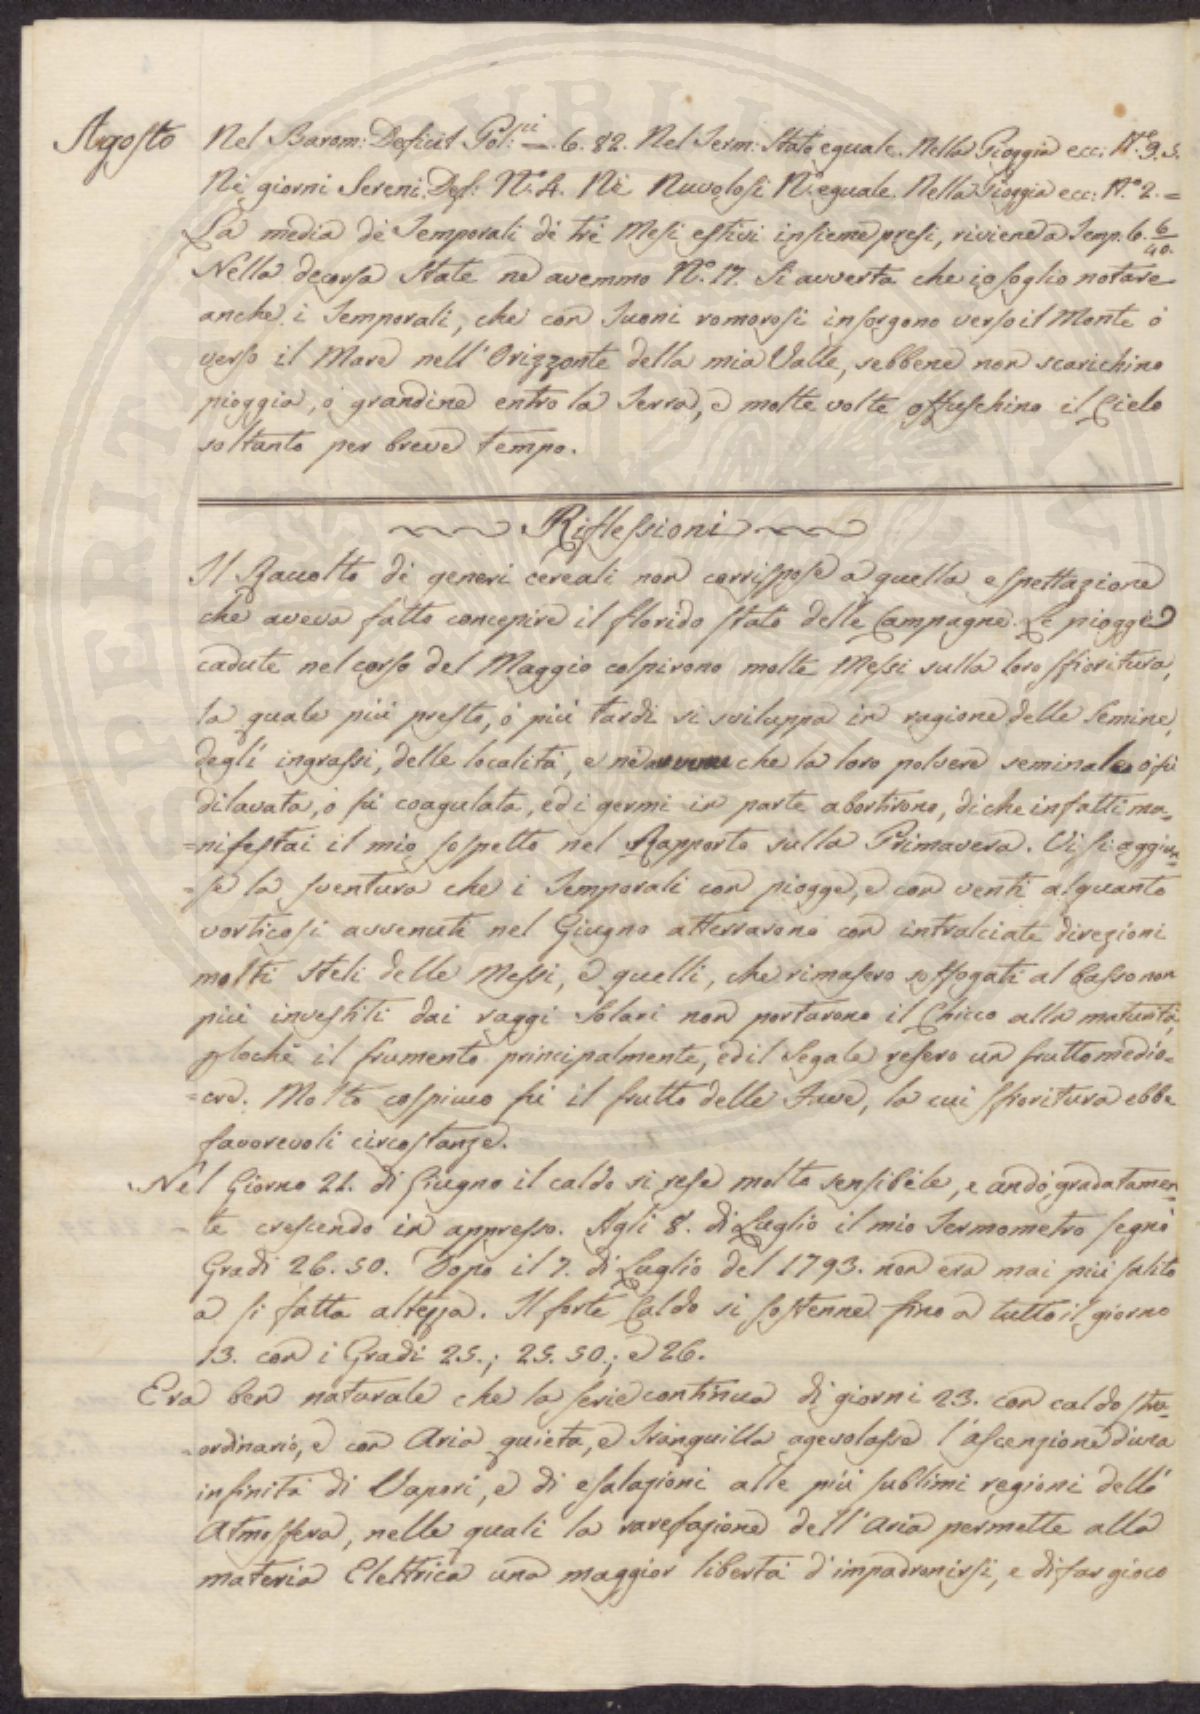 Agosto Nel Barom: Deficit Pol:ci —. 6. 82. Nel Term: Stato eguale. Nella Pioggia ecc: N.° 9. 5.
Ne giorni Sereni. Def: N.° 4. Ne Nuvolosi N.° eguale. Nella Pioggia ecc: N.° 2. =
La media de Temporali de tre Mesi estivi insieme presi, riviene a Temp. 6. 6/40.
Nella decorsa State ne avemmo N.° 17. Si avverta che io soglio notare
anche i Temporali, che con Tuoni romorosi insorgono verso il Monte ò
verso il Mare nell'Orizzonte della mia Valle, sebbene non scarichino
pioggia, ò grandine entro la Terra, e molte volte offuschino il Cielo
soltanto per breve tempo.
Riflessioni
Il Raccolto de generi cereali non corrispose a quella espettazione
che aveva fatto concepire il florido stato delle Campagne. Le piogge
cadute nel corso del Maggio colpirono molte Messi sulla loro sfioritura,
la quale più presto, ò più tardi si sviluppa in ragione delle Semine,
degl'ingrassi, delle località, e ne avvenne che la loro polvere seminale ò fù
dilavata, ò fù coagulata, ed i germi in parte abortirono, di che infatti ma=
=nifestai il mio sospetto nel Rapporto sulla Primavera. Vi si aggiun=
=se la sventura che i Temporali con piogge, e con venti alquanto
vorticosi avvenuti nel Giugno atterrarono con intralciate direzioni
molti steli delle Messi, e quelli, che rimasero soffogati al basso non
più investiti dai raggi Solari non portarono il Chicco alla maturità,
plochè il frumento principalmente, ed il Segale resero un frutto medio=
=cre. Molto cospicuo fù il frutto delle Fave, la cui sfioritura ebbe
favorevoli circostanze.
Nel Giorno 21. di Giugno il caldo si rese molto sensibile, e andò gradatamen=
=te crescendo in appresso. Agli 8. di Luglio il mio Termometro segnò
Gradi 26. 50. Dopo il 7. di Luglio del 1793. non era mai più salito
a si fatta altezza. Il forte Caldo si sostenne fino a tutto il giorno
13. con i Gradi 25.; 25. 50.; e 26.
Era ben naturale che la serie continua di giorni 23. con caldo stra=
=ordinario, e con Aria quieta, e Tranquilla agevolasse l'ascenzione d'una
infinità di Vapori, e di esalazioni alle più sublimi regioni dell'
Atmosfera, nelle quali la rarefazione dell'Aria permette alla
materia Elettrica una maggior libertà d'impadronirsi, e di far gioco